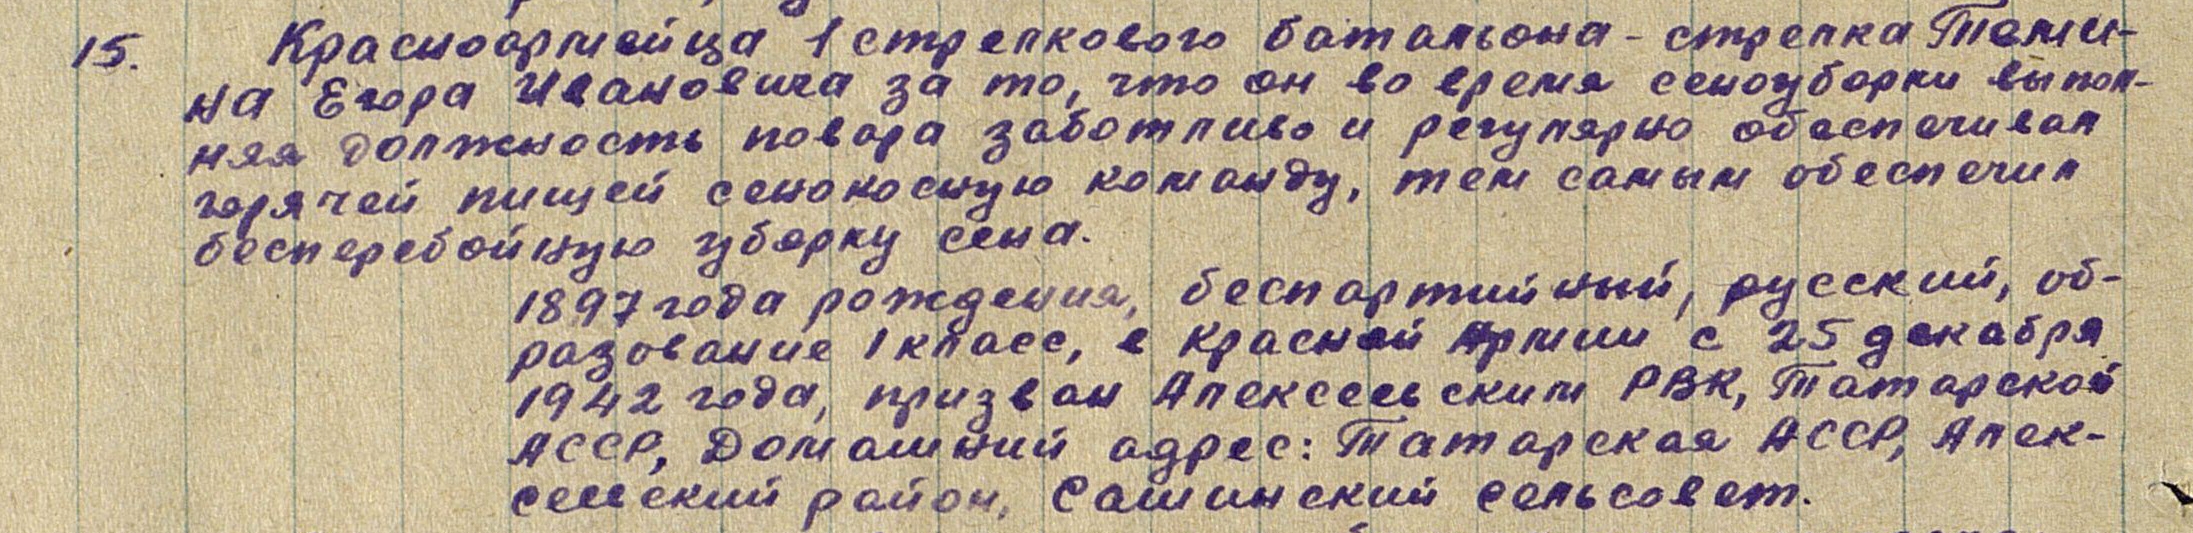 15. Красноармейца 1 стрелкового батальона - стрелка Теми-
на Егора Ивановича за то, что он во время сеноуборки выпол-
няя должность повара заботливо и регулярно обеспечивал
горячей пищей сенокосную команду, тем самым обеспечил
бесперебойную уборку сена.
1897 года рождения, беспартийный, русский, об-
разование 1 класс, в Красной Армии с 25 декабря
1942 года, призван Алексеевским РВК, Татарской
АССР, Домашний адрес: Татарская АССР, Алек-
сеевский район, Сашинский сельсовет.